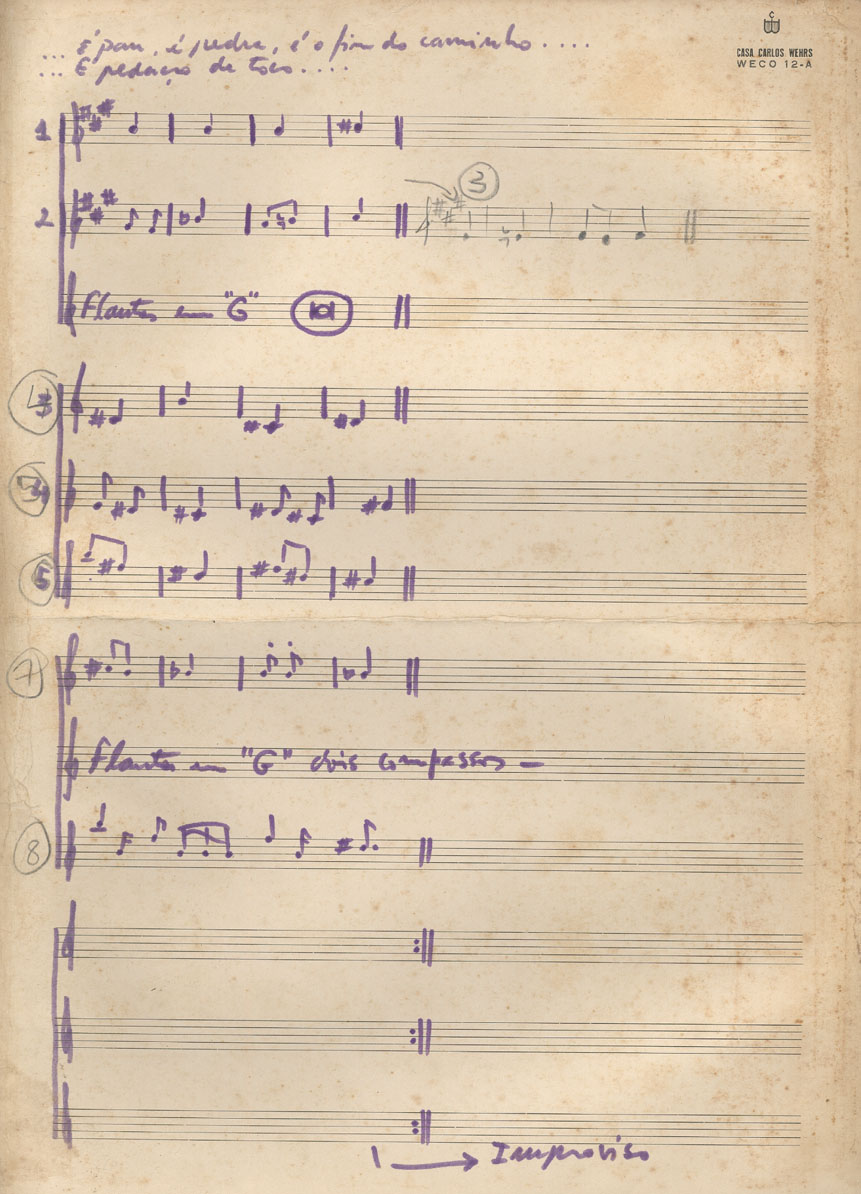 ... É pau, é pedra, é o fim do caminho ....
... É pedaço de toco ....
C
W
CASA CARLOS WEHRS
WECO 12-A
1
2
3
Flautas em "G"
4
5
7
Flautas em "G" dois compassos —
8
1 → Improviso